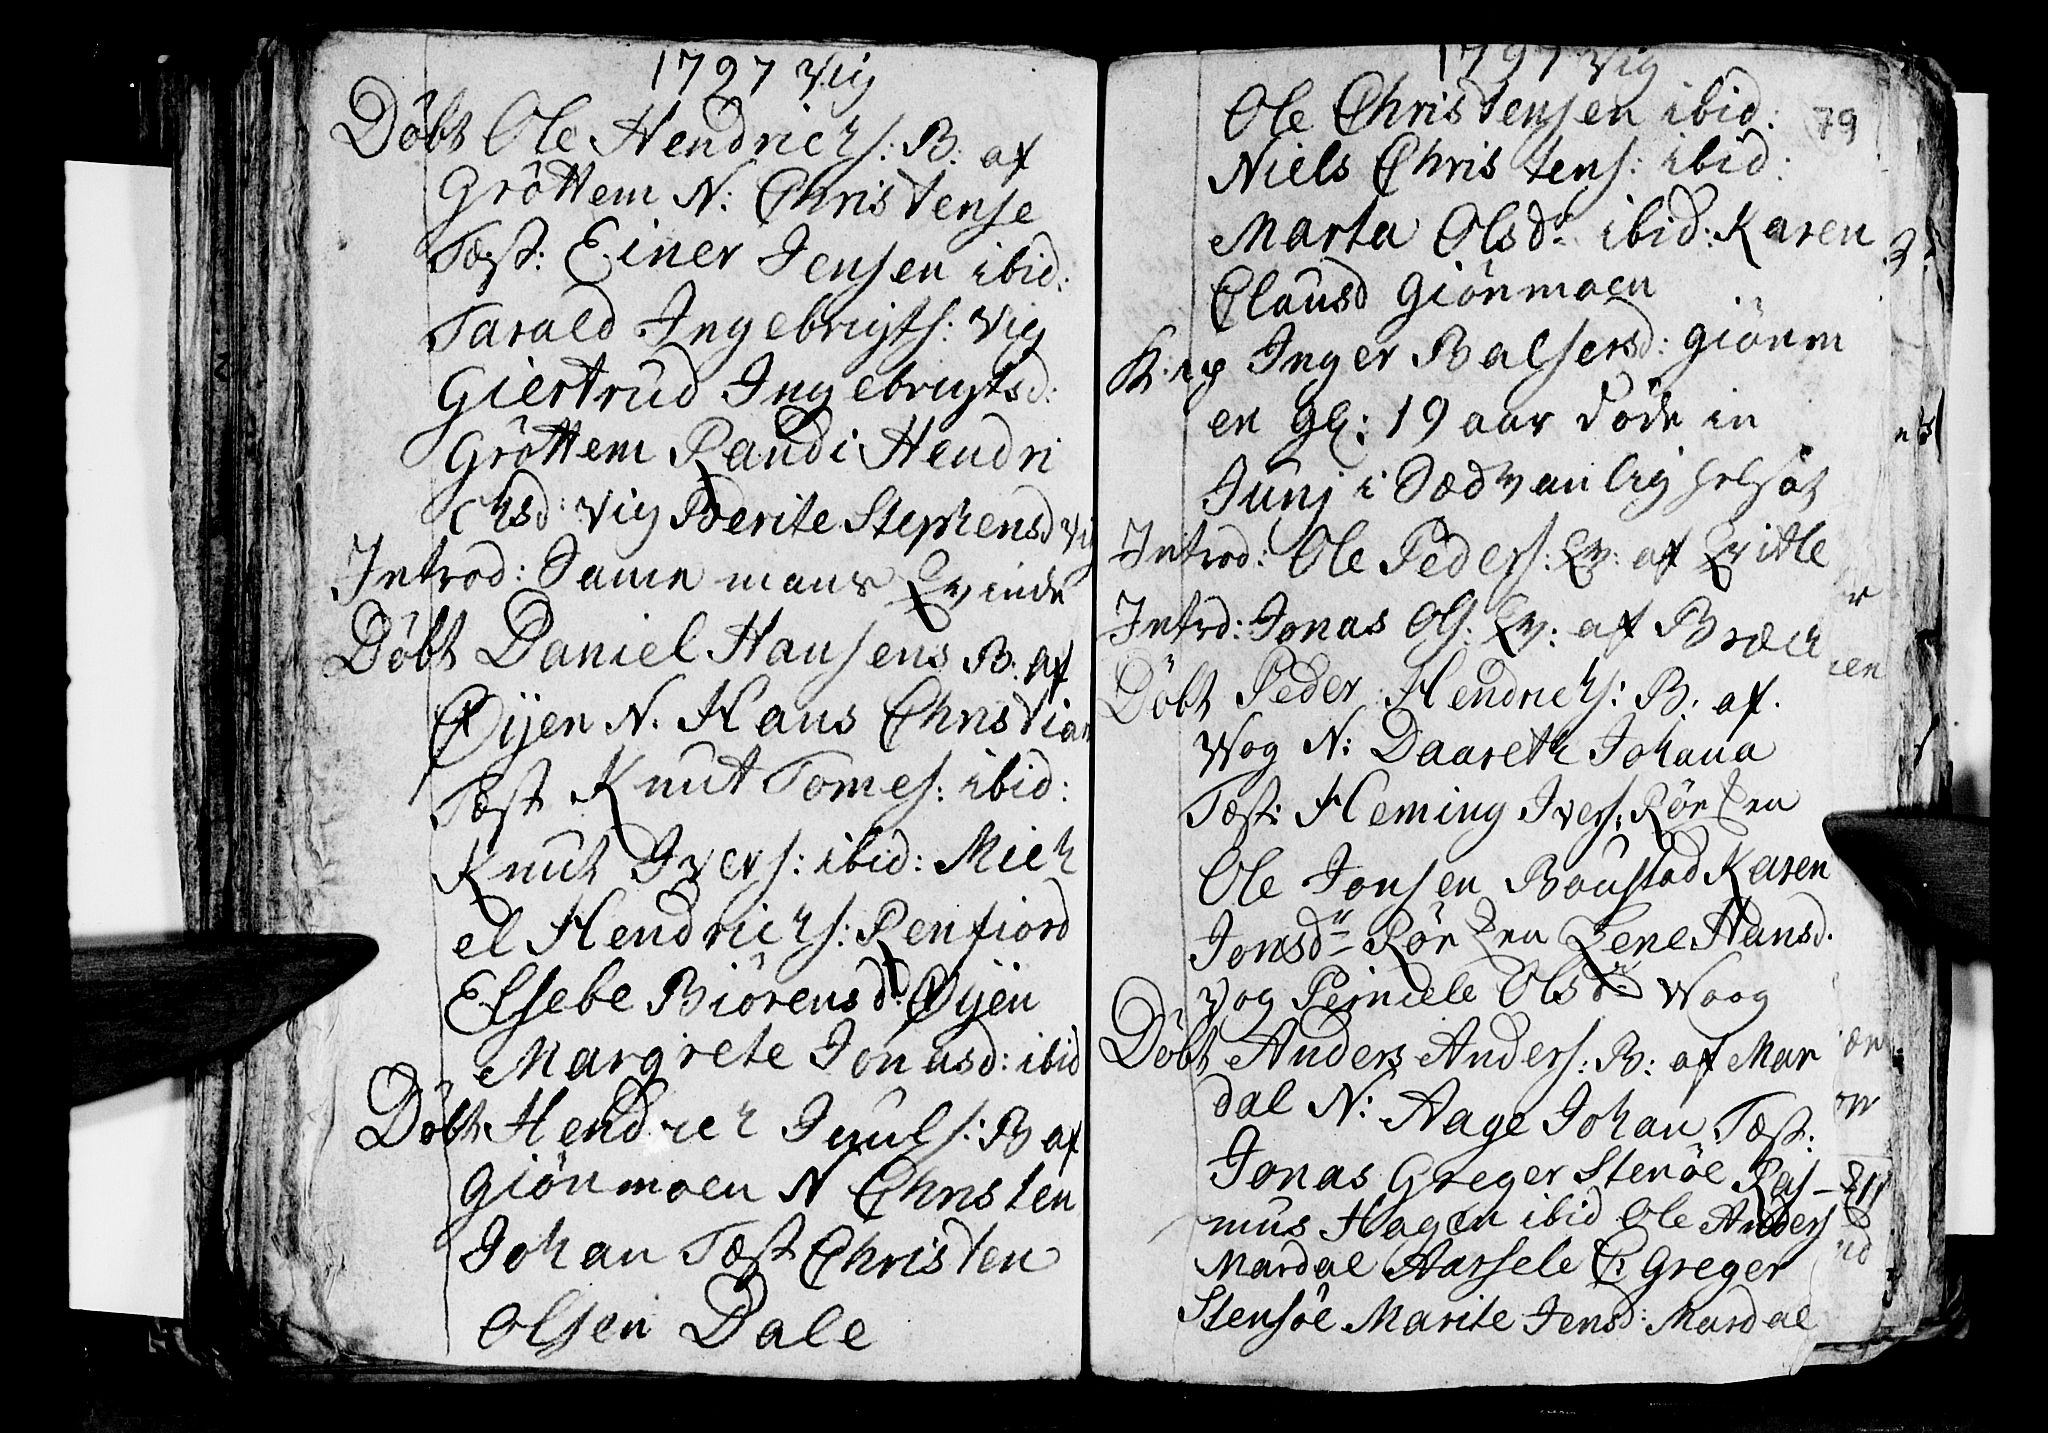 1797 Vig
Döbt Ole Hendrichs: B: af
Gröttem N: Christense
Test: Einer Jensen ibid:
Tarald Ingebrigts: Vig
Giertrud Ingebrigtsd:
Gröttem Randi Hendri
chsd: Vig Berite Stephensd Vig
Introd: Samme mans Qvinde
Döbt Daniel Hansens B: af
Øijen N. Hans Christian
Test Knut Tomes: ibid:
Knut Ivers: ibid: Mich
el Hendrichs: Renfiord
Elsebe Biörensd: Øijen
Margrete Jonasd: ibid
Döbt Hendrich Juuls: B af
Giönmoen N Christen
Johan Test Christen
Olsen Dale
1797 Vig
79
Ole Christensen ibid:
Niels Christens: ibid:
Marta Olsdr ibid: Karen
Clausd Giönmoen
Inger Balsersd: Giönm
en gl: 19 aar döde in
Junj i Sædvanlig
Introd: Ole Peders: Qv: af
Intrd: Jonas Ols: Qv: af Bræch
Döbt Peder Hendrichs: B: af.
Vog N: Daareth Johana
Test: Heming Ivers:
Ole Jonsen Boustad Karen
Jonsdr Lene Hansd.
Vog Pernele Olsdr Woog
Döbt Anders Anders: B: af Mar
dal N: Aage Johan Test:
Jonas Greger Stensöe Ras-
mus Hagen ibid Ole Anders
Mardal Aarsele C: Greger
Stensöe Marite Jensd: Mardal